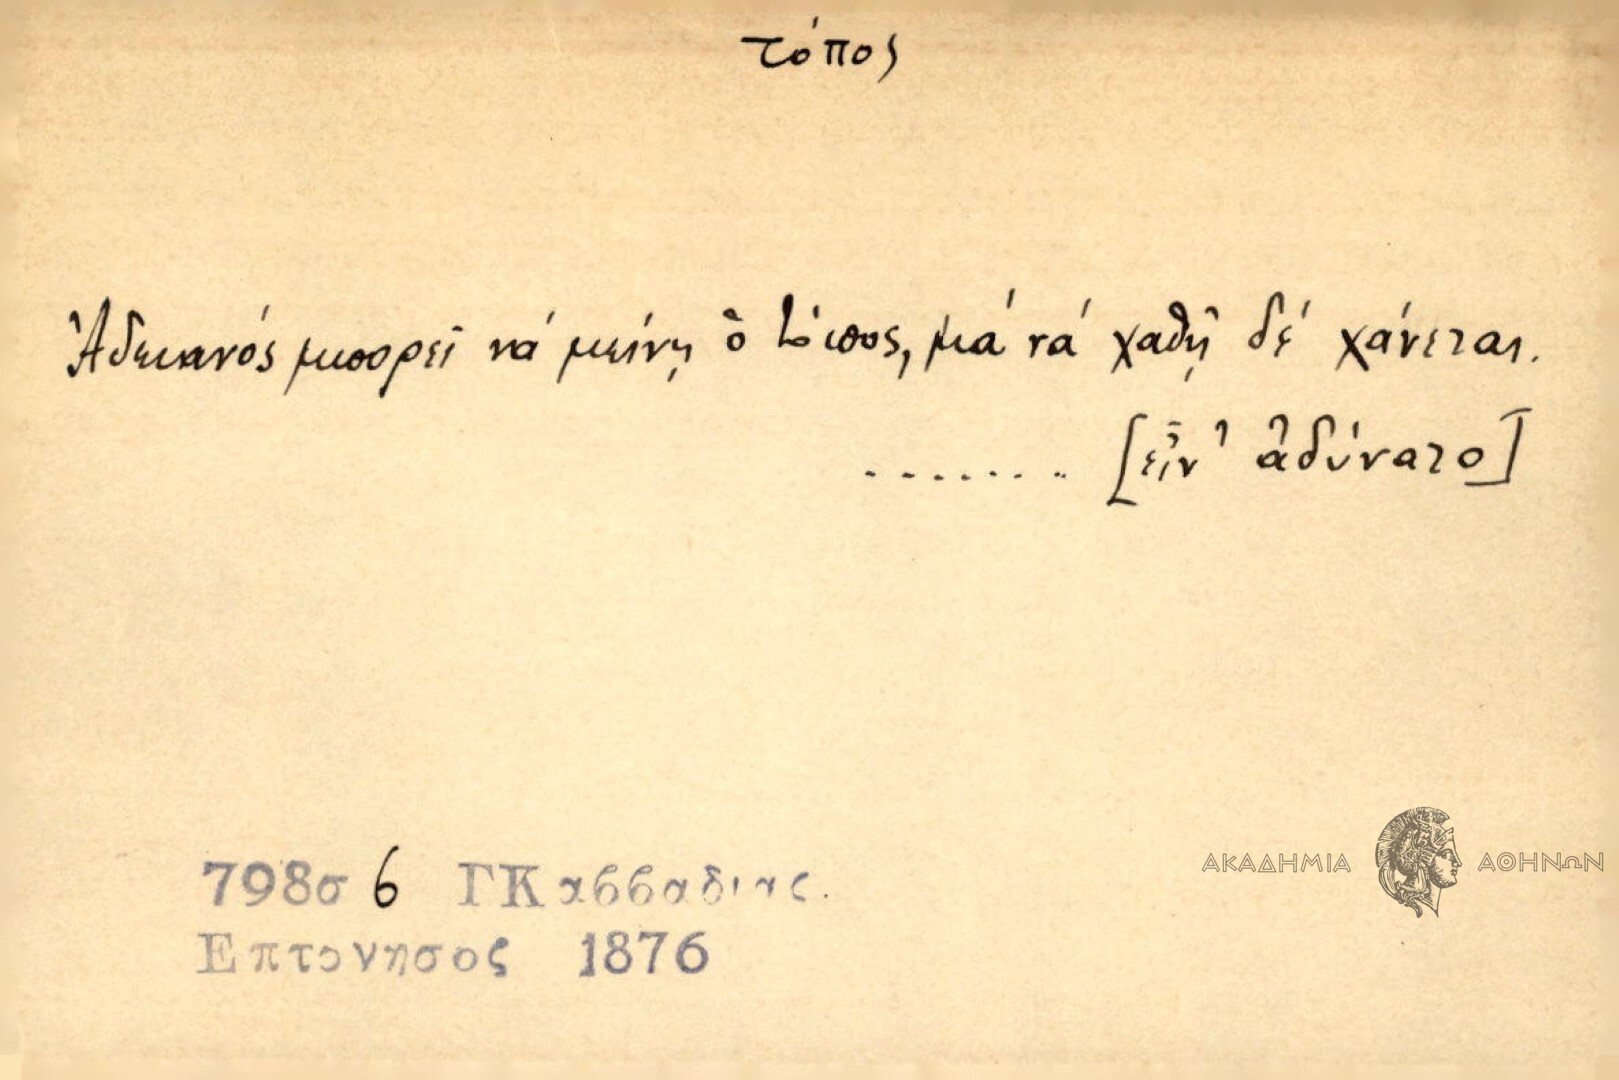 τόπος
Ἀδειανός μπορεῖ νά μείνῃ ὁ τόπος, μά νά χαθῇ δέ χάνεται.
....... [εἶν' ἀδύνατο]
798σ 6 ΓΚαββαδιας.
Επτονησος 1876
ΑΚΑΔΗΜΙΑ ΑΘΗΝΩΝ